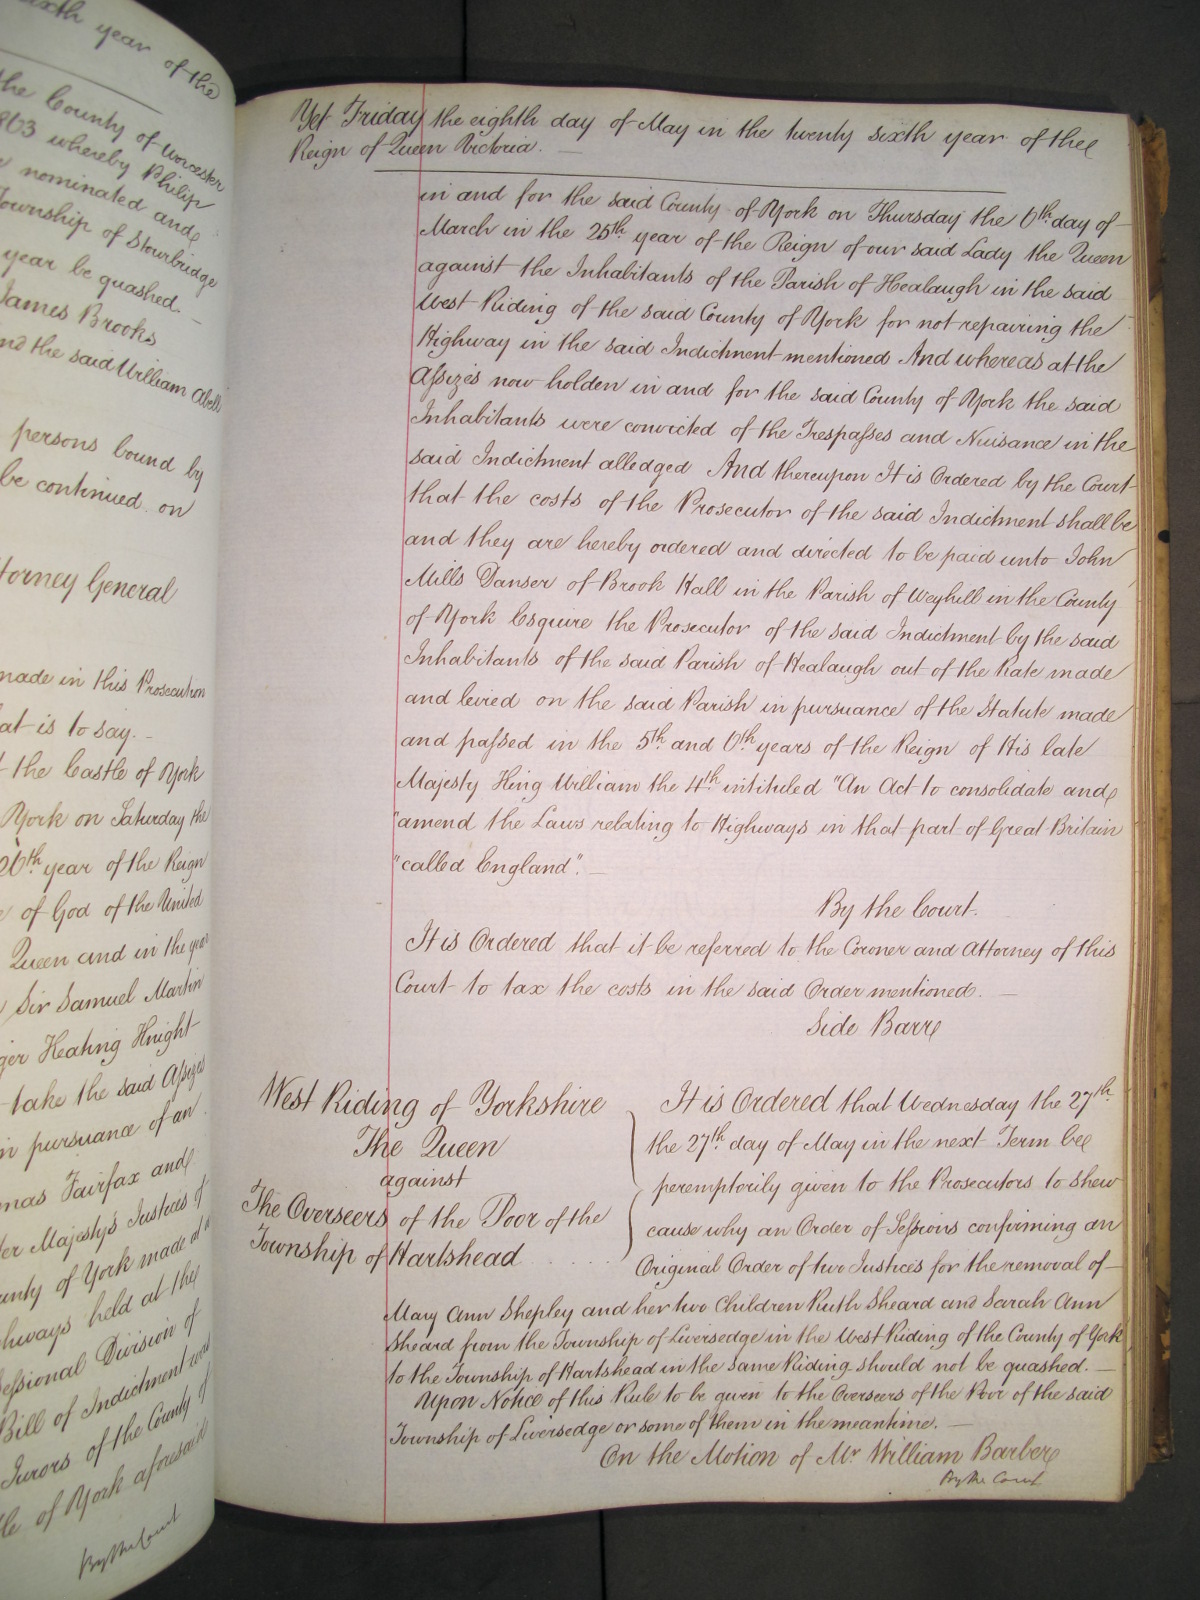 sixth year of the
the County of Worcester
1863 whereby Philip
nominated and
Township of Stourbridge
year be quashed. –
James Brooks
and the said William Abell
persons bound by
be continued on
Attorney General
made in this Prosecution
that is to say. –
the Castle of York
York on Saturday the
26th year of the Reign
of God of the United
Queen and in the year
Sir Samuel Martin
Keating Knight
take the said Assizes
in pursuance of an
Thomas Fairfax and
Her Majesty's Justices of
County of York made at
Highways held at the
Sessional Division of
Bill of Indictment was
Jurors of the County of
of York aforesaid
By the Court
Yet Friday the eighth day of May in the twenty sixth year of the
Reign of Queen Victoria. –
in and for the said County of York on Thursday the 6th day of
March in the 25th year of the Reign of our said Lady the Queen
against the Inhabitants of the Parish of Healaugh in the said
West Riding of the said County of York for not repairing the
Highway in the said Indictment mentioned And whereas at the
Assizes now holden in and for the said County of York the said
Inhabitants were convicted of the Trespasses and Nuisance in the
said Indictment alledged And thereupon It is Ordered by the Court
that the costs of the Prosecutor of the said Indictment shall be
and they are hereby ordered and directed to be paid unto John
Mills Danser of Brook Hall in the Parish of Weyhill in the County
of York Esquire the Prosecutor of the said Indictment by the said
Inhabitants of the said Parish of Healaugh out of the Rate made
and levied on the said Parish in pursuance of the Statute made
and passed in the 5th and 6th years of the Reign of His late
Majesty King William the 4th intituled "An Act to consolidate and
"amend the Laws relating to Highways in that part of Great Britain
"called England". –
By the Court.
It is Ordered that it be referred to the Coroner and Attorney of this
Court to tax the costs in the said Order mentioned. –
Side Bar
West Riding of Yorkshire
The Queen
against
The Overseers of the Poor of the
Township of Hartshead . . . .
It is Ordered that Wednesday the 27th
the 27th day of May in the next Term be
peremptorily given to the Prosecutors to shew
cause why an Order of Sessions confirming an
Original Order of two Justices for the removal of
Mary Ann Shepley and her two Children Ruth Sheard and Sarah Ann
Sheard from the Township of Liversedge in the West Riding of the County of York
to the Township of Hartshead in the same Riding should not be quashed. –
Upon Notice of this Rule to be given to the Overseers of the Poor of the said
Township of Liversedge or some of them in the meantime. –
On the Motion of Mr William Barber
By the Court